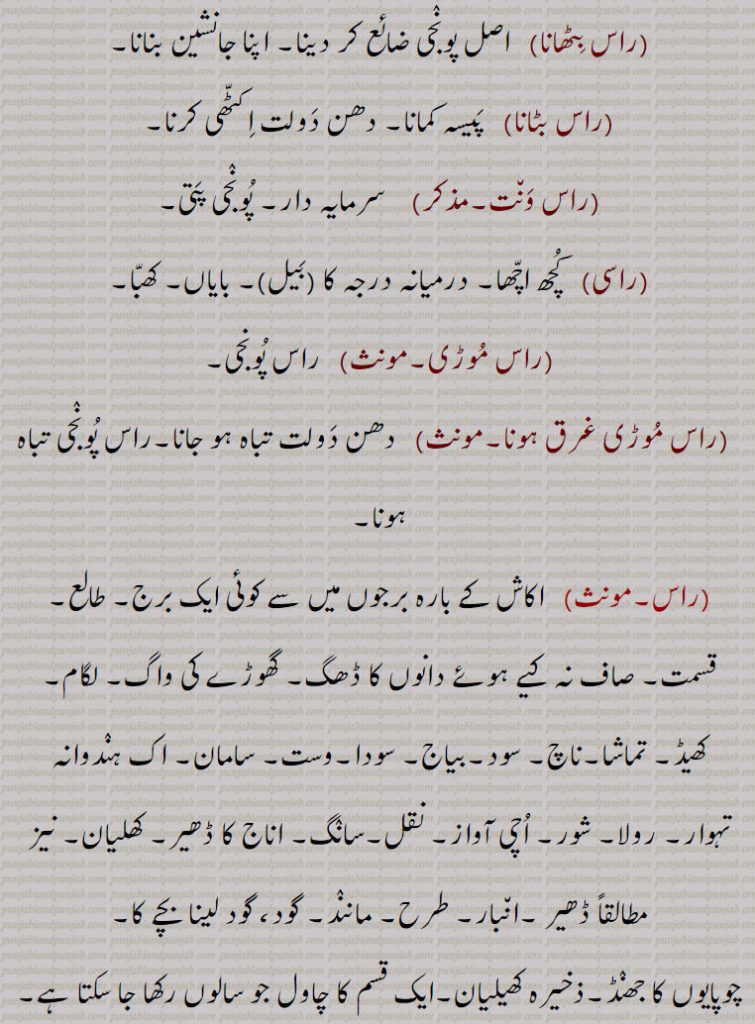 (راس بِٹھانا) اصل پونْجی ضائع کر دینا۔ اپنا جانشین بنانا۔
(راس بٹانا) پَیسہ کمانا۔ دھن دَولت اِکٹّھی کرنا۔
(راس وَنّت۔مذکر) سرمایہ دار۔ پُونْجی پَتی۔
(راسی) کُچھ اچّھا۔ درمیانہ درجہ کا (بَیل)۔ بایاں۔ کھبّا۔
(راس مُوڑی۔مونث) راس پُونجی۔
(راس مُوڑی غرق ہونا۔مونث) دھن دَولت تباہ ہو جانا۔راس پُونْجی تباہ
ہونا۔
(راس۔مونث) اکاش کے بارہ برجوں میں سے کوئی ایک برج۔ طالع۔
قسمت۔ صاف نہ کیے ہوئے دانوں کا ڈھگ۔ گھوڑے کی واگ۔ لگام۔
کھیڈ۔ تماشا۔ناچ۔ سود۔بیاج۔ سودا۔وست۔ سامان۔ اک ہنْدوانہ
تہوار۔ رولا۔ شور۔ اُچی آواز۔ نقل۔سانْگ۔ اناج کا ڈھیر۔ کھلیان۔ نیز
مطالقاً ڈھیر ۔انّبار۔ طرح۔ مانند۔ گود، گود لینا بچے کا۔
چوپایوں کا جھنْڈ۔ذخیرہ کھیلیان۔ایک قسم کا چاول جو سالوں رکھا جا سکتا ہے۔